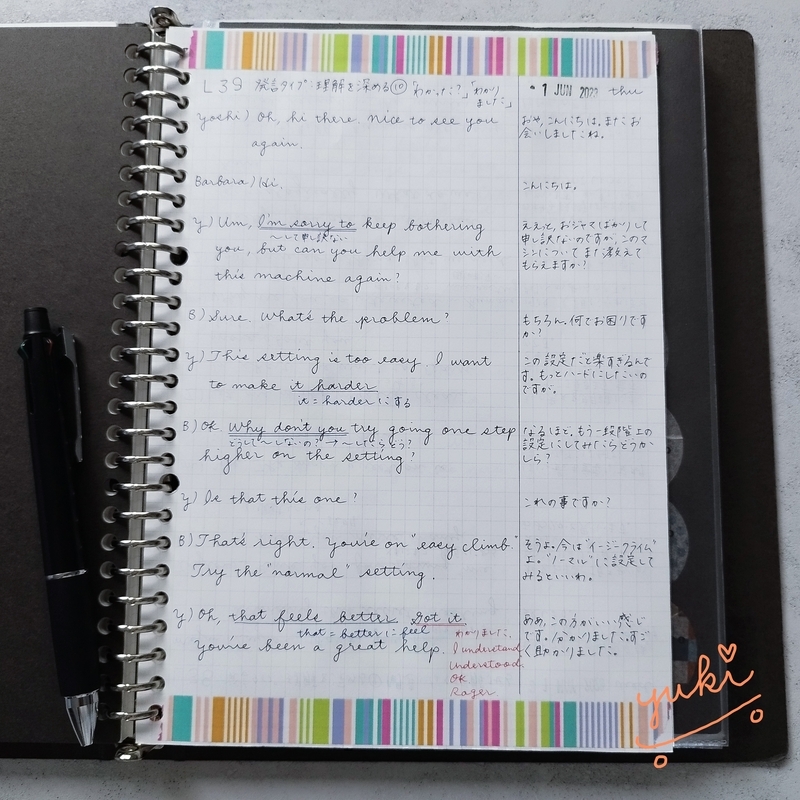 L39 発言タイプ:理解を深める⑩「わかった?」「わかりました」
1 JUN 2023 thu
Yoshi) Oh, hi there. Nice to see you
again.
おや、こんにちは。またお
会いしましたね。
Barbara) Hi.
こんにちは。
Y) Um, I'm sorry to keep bothering
〜して申し訳ない
you, but can you help me with
this machine again?
ええと、おジャマばかりして
申し訳ないのですが、このマ
シンについてまた教えて
もらえますか?
B) Sure. What's the problem?
もちろん。何でお困りです
か?
Y) This setting is too easy. I want
to make it harder
it = harder にする
この設定だと楽すぎるんで
す。もっとハードにしたいの
ですが。
B) OK. Why don't you try going one step
どうして〜しないの? → 〜したらどう?
higher on the setting?
なるほど。もう一段階上の
設定にしてみたらどうか
しら?
Y) Is that this one?
これの事ですか?
B) That's right. You're on "easy climb."
Try the "normal" setting.
そうよ。今は"イージークライム"
よ。"ノーマル"に設定して
みるといいわ。
Y) Oh, that feels better. Got it.
that = better に feel
You've been a great help.
わかりました。
I understand.
Understood.
OK
Roger
ああ、この方がいい感じ
です。分かりました。すご
く助かりました。
yuki